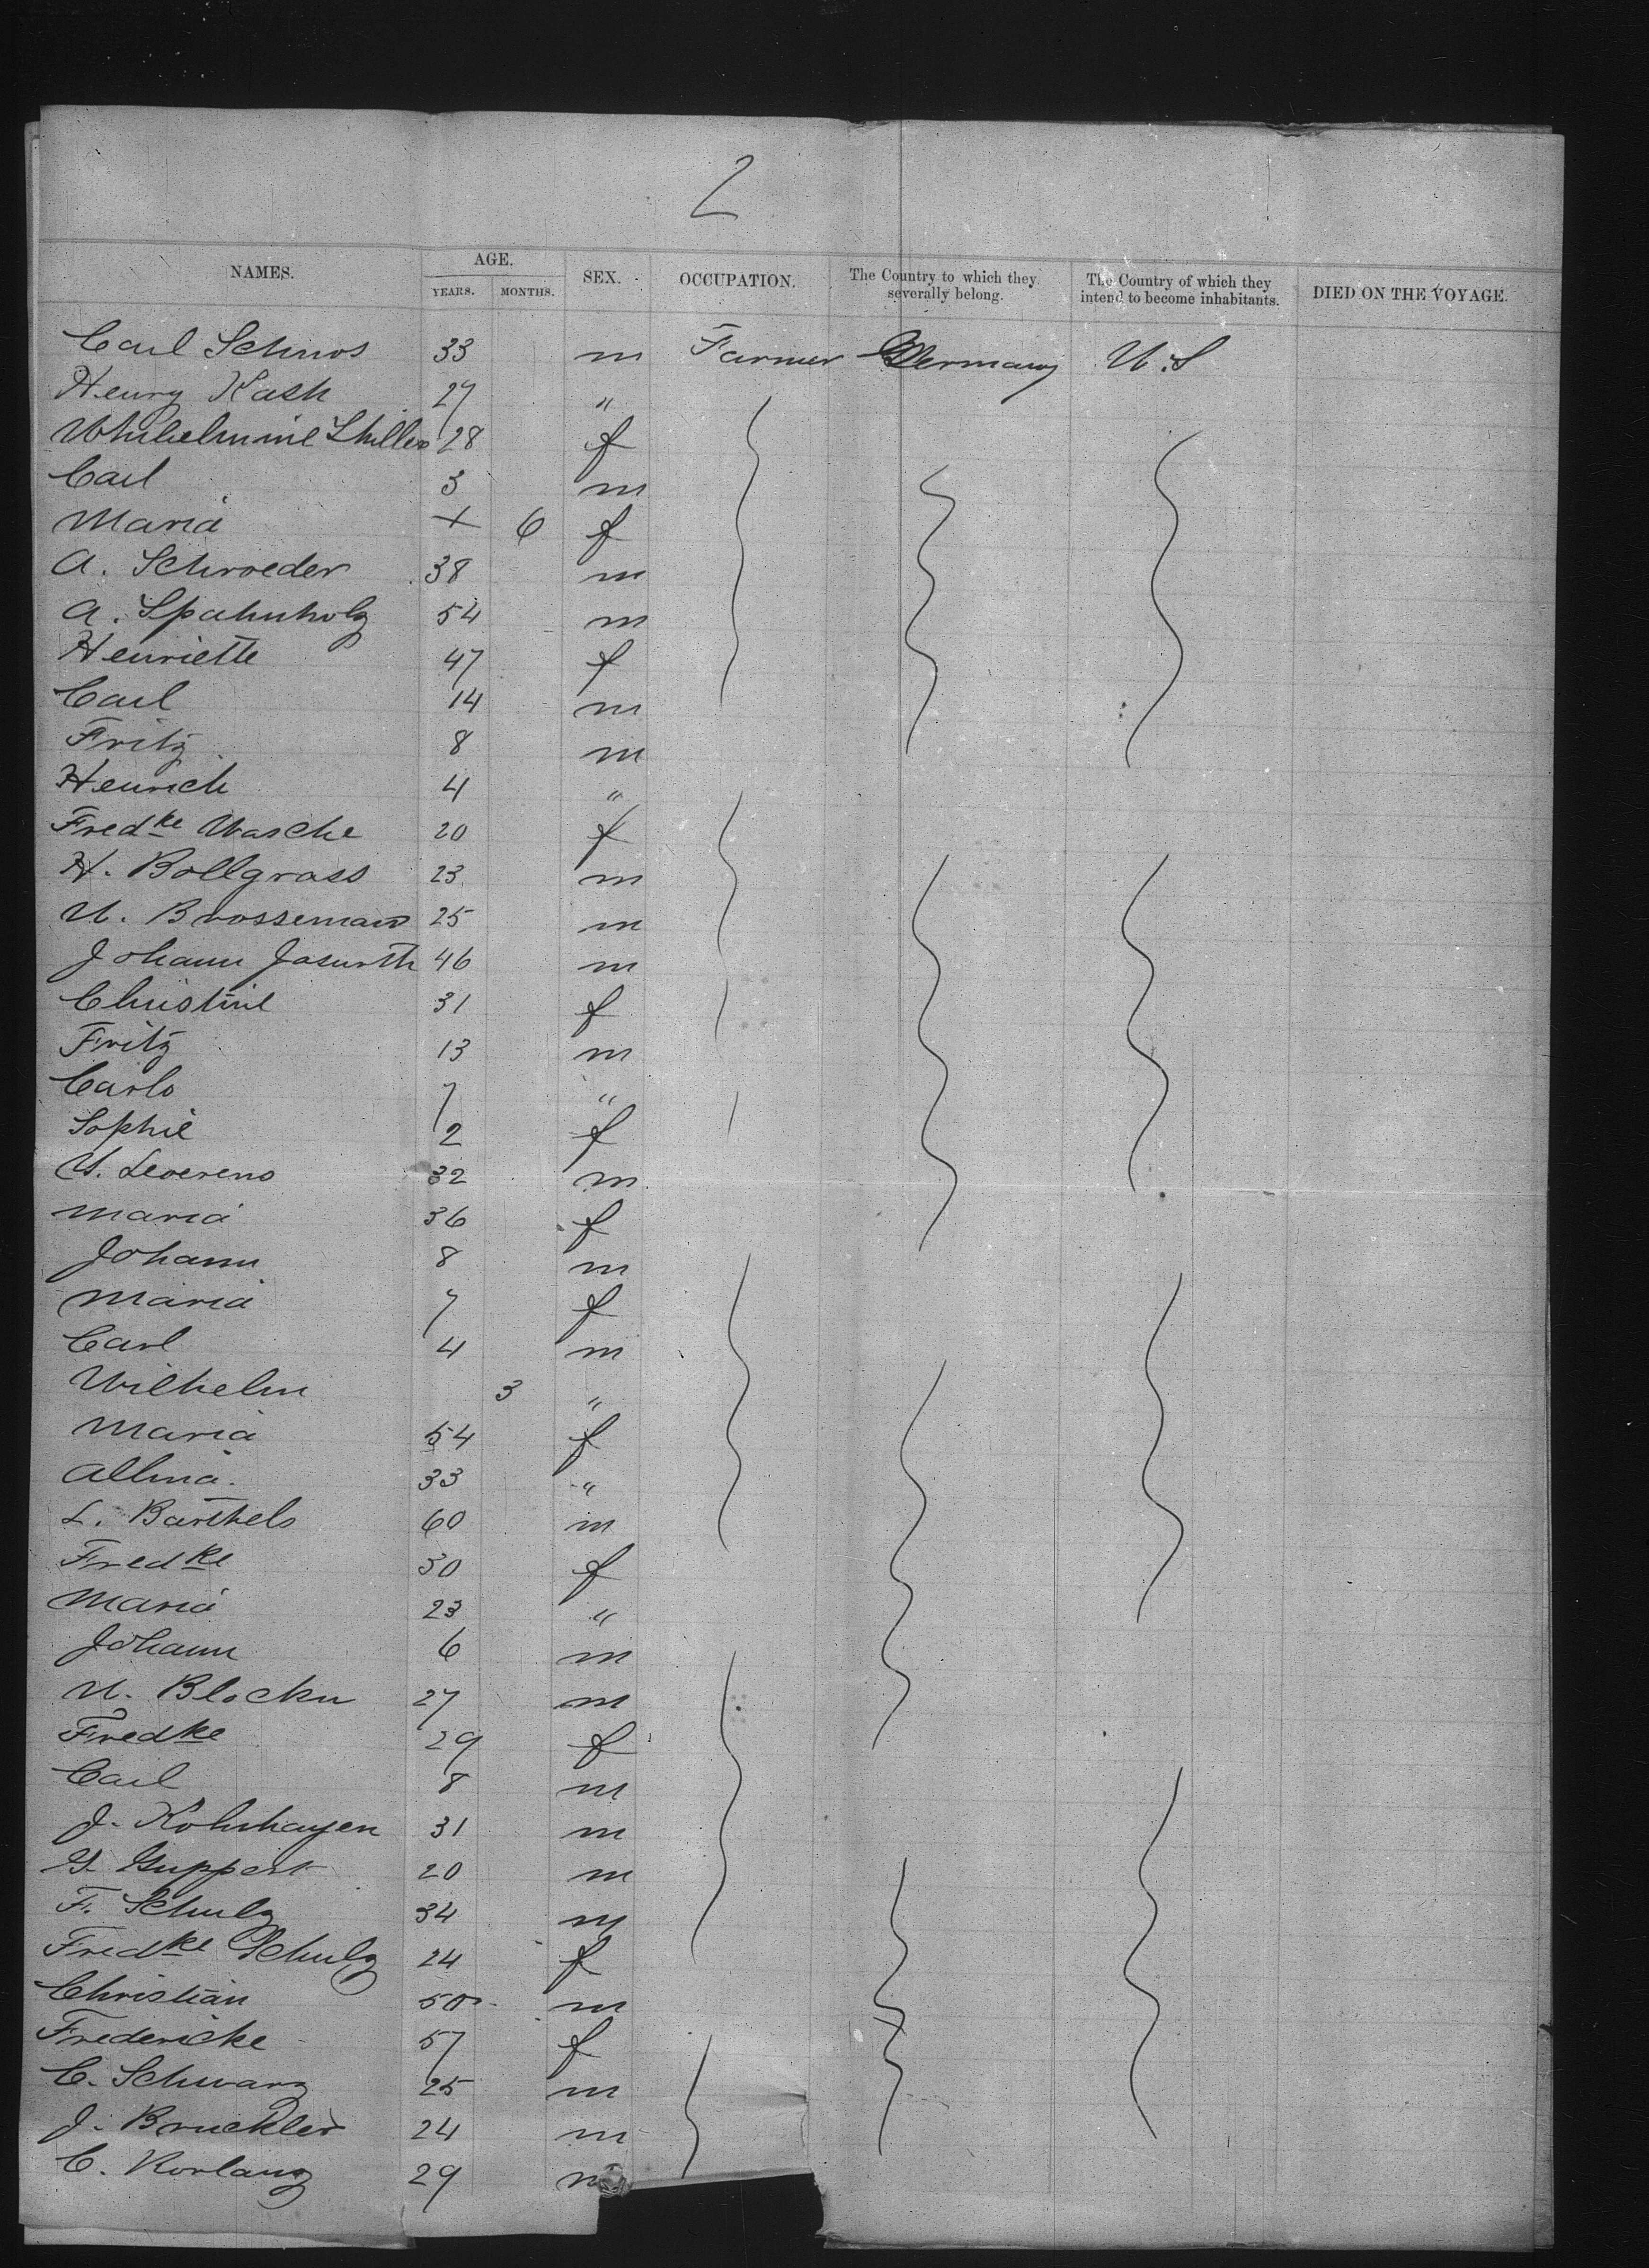 2
NAMES. AGE. YEARS. MONTHS. SEX. OCCUPATION. The Country to which they severally belong. The Country of which they intend to become inhabitants. DIED ON THE VOYAGE.
Carl 33 m Farmer Germany U.S
Henry Kash 27 "
28 f
Carl 3 m
Maria + 6 f
A. Schroeder 38 m
A. Spahnholz 54 m
Henriette 47 f
Carl 14 m
Fritz 8 m
Henrich 4 "
Fredke Wasche 20 f
H. Bollgrass 23 m
25 m
Johann 46 m
Christine 31 f
Fritz 13 m
Carls 7 "
Sophie 2 f
32 m
Maria 36 f
Johann 8 m
Maria 7 f
Carl 4 m
Wilhelm 3 "
Maria 54 f
33 "
L. Barthels 60 m
Fredke 30 f
Maria 23 "
Johann 6 m
27 m
Fredke 29 f
Carl 8 m
J. 31 m
20 m
F. Schulz 34 m
Fredke Schulz 24 f
Christian 50 m
Fredericke 57 f
C. Schwarz 25 m
J. Bruckler 24 m
C. Korlang 29 m